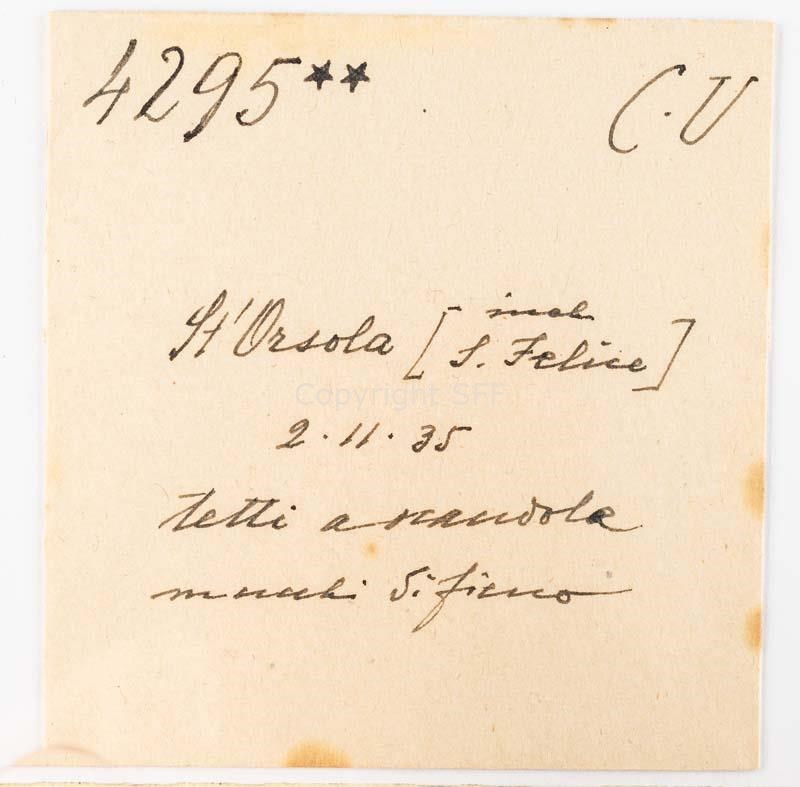 4295** C.U
St'Orsola [incl S. Felice]
2.11.35
tetti a scandole
mucchi di fieno
Copyright SFF